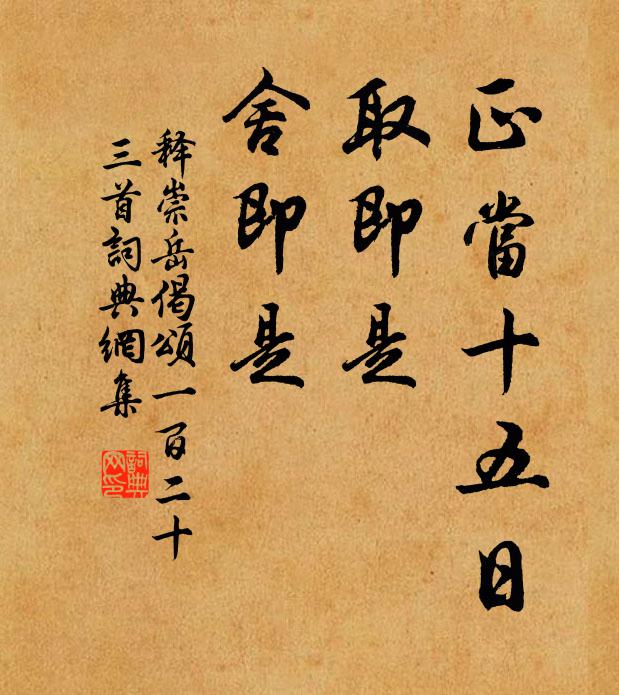 正當十五日
取即是
舍即是
釋崇岳偈頌一百二十
三首詞典網集
詞典
网印